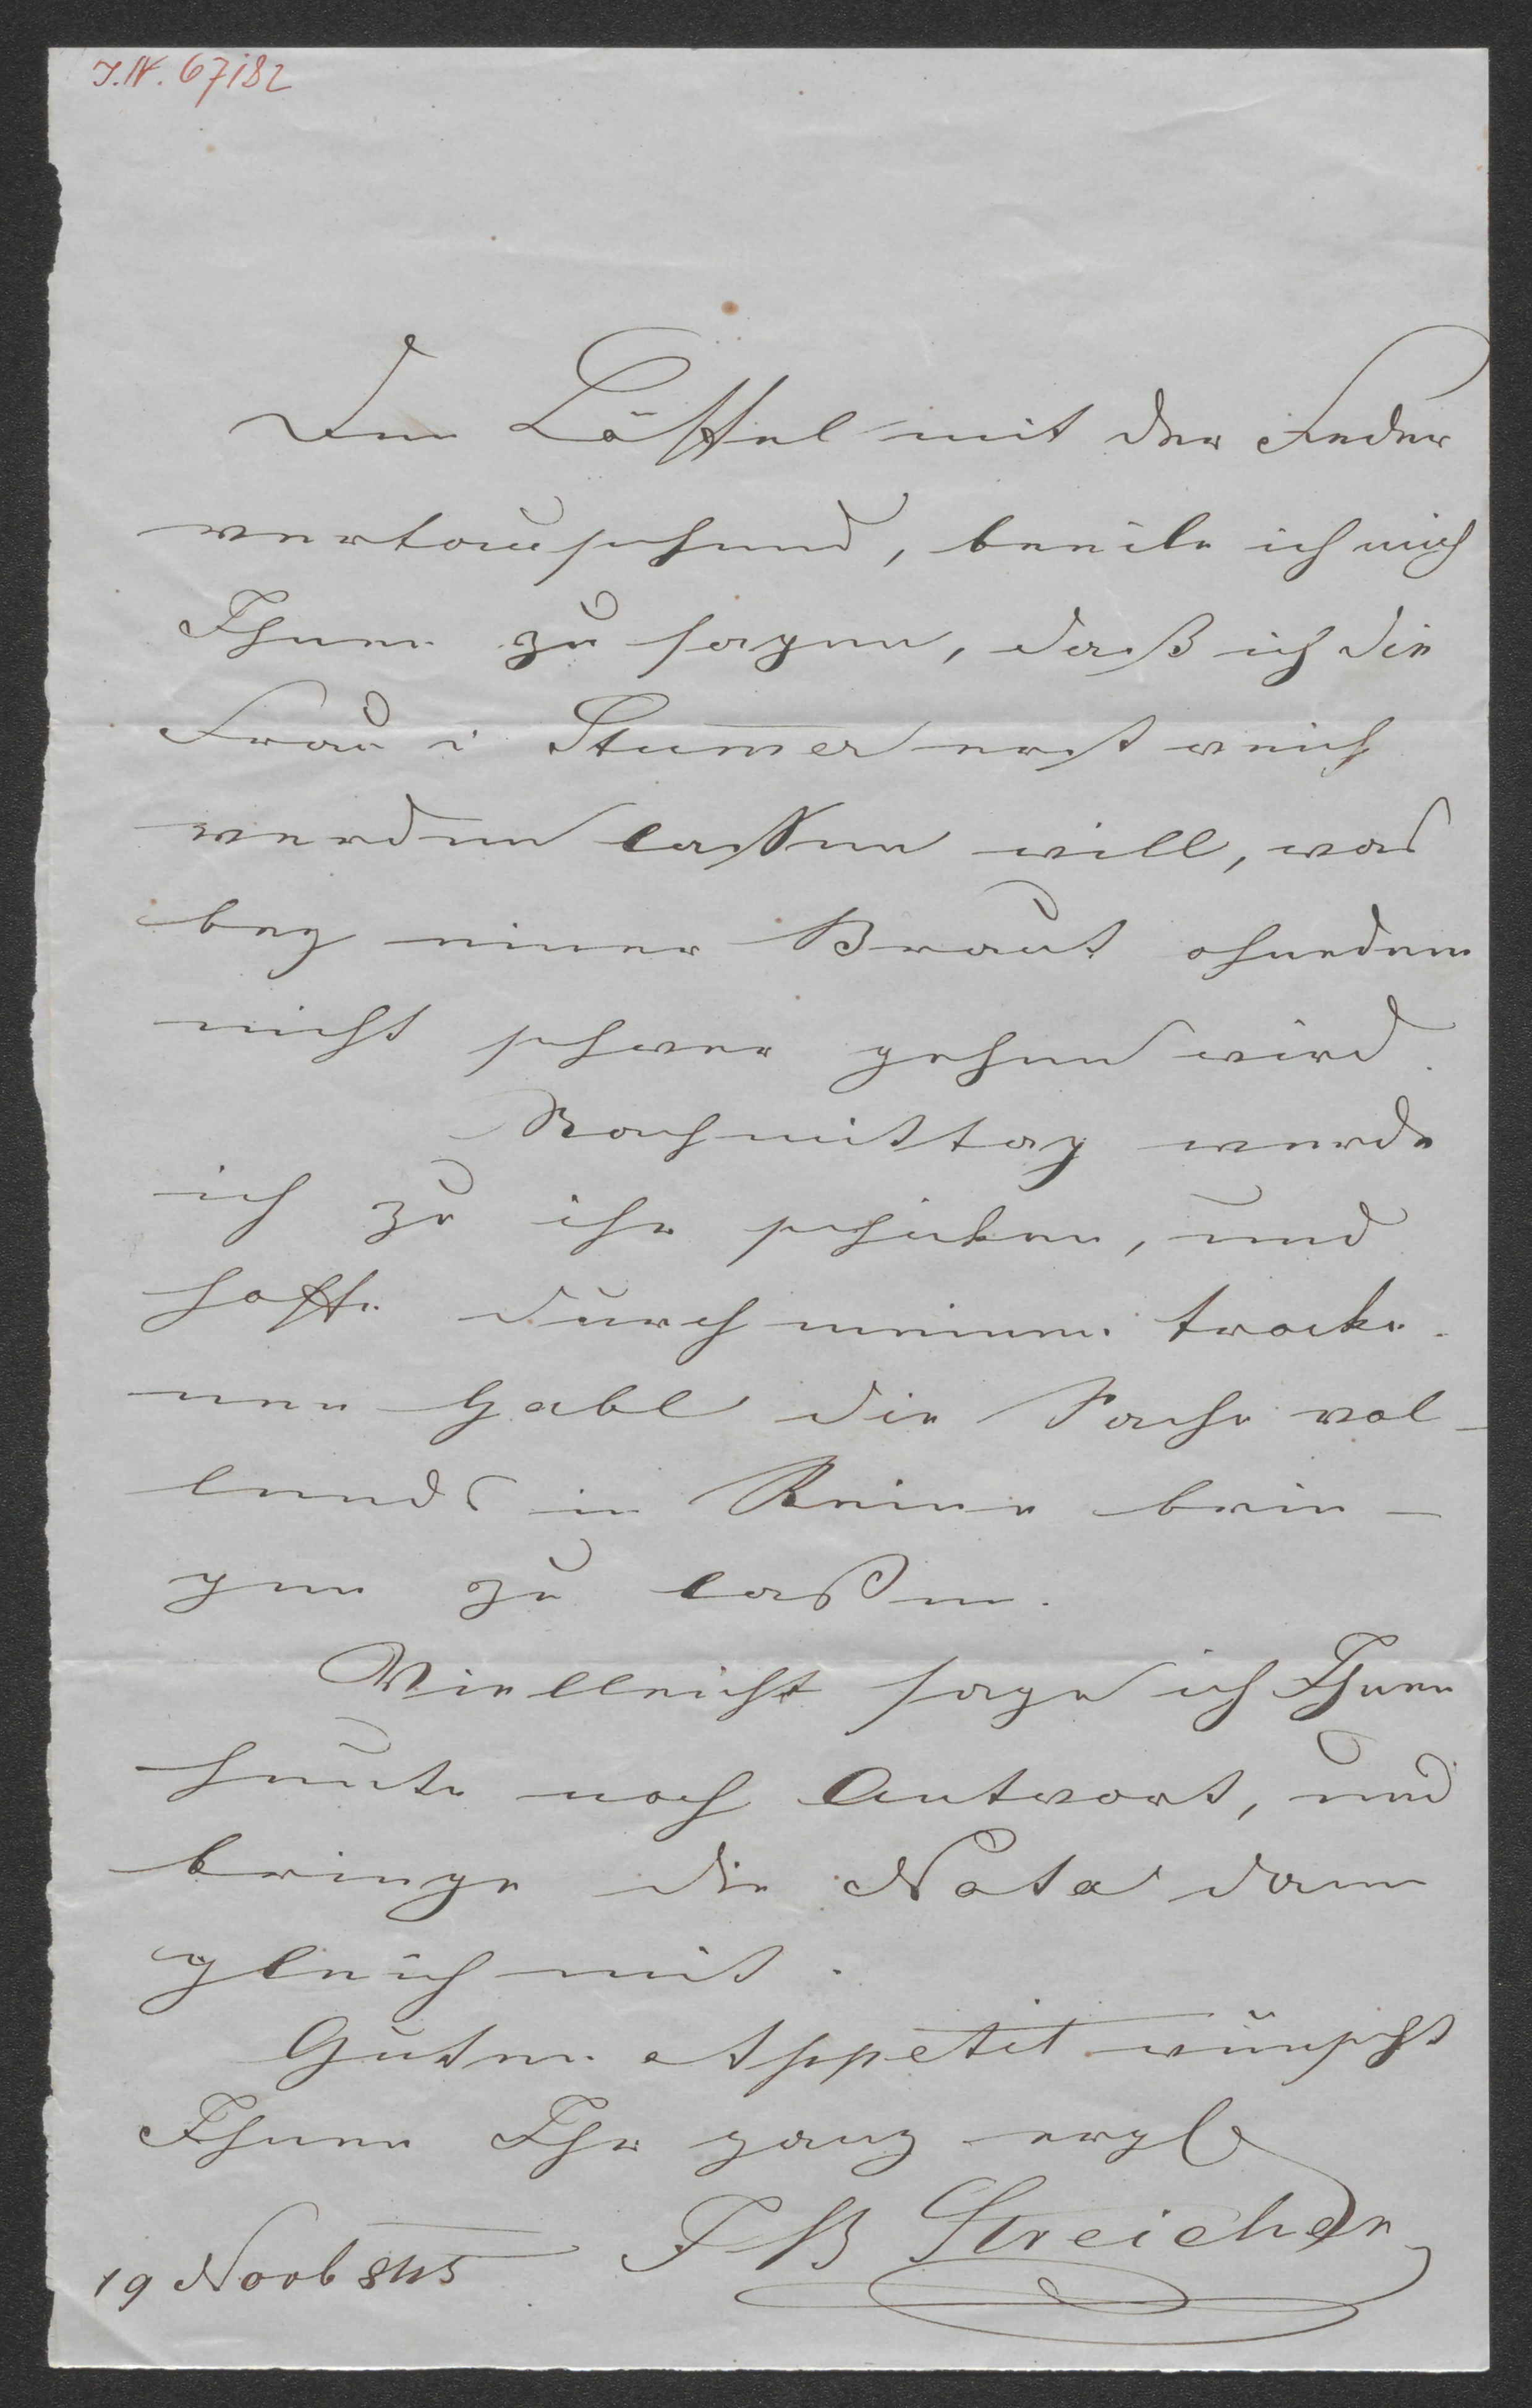 I.N. 67182
Den Löffel mit der Feder
vertauschend, beeile ich mich
Ihnen zu sagen, daß ich die
Frau v Stumer erst weich
werden lassen will, was
bey einer Braut ohnedem
nicht schwer gehen wird.
Nachmittag werde
ich zu ihr schicken, und
hoffe durch meinen trocke-
nen Gabl die Sache vol-
lends in Reine brin-
gen zu laßen.
Vielleicht sage ich Ihnen
heute noch Antwort, und
bringe die Nota dann
gleich mit.
Guten Appetit wünscht
Ihnen Ihr ganz
JB Streicher
19 Novb 845